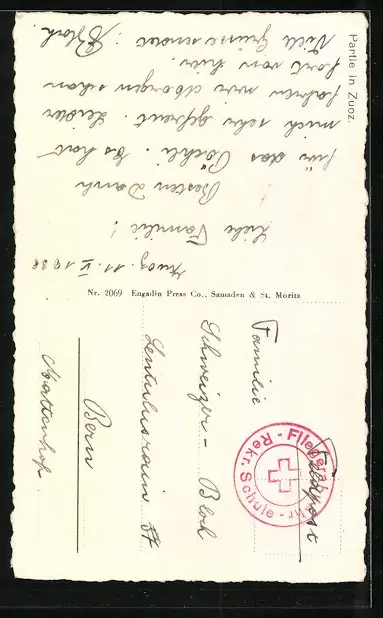 Partie in Zuoz.
Zuoz, 11. V. 1938
Liebe Familie!
Besten Dank
für das Päckli. Es hat
mich sehr gefreut. Leider
fahren wir morgen schon
fort von hier.
Viele Grüsse sendet: Bloch
Nr. 2069 Engadin Press Co., Samaden & St. Moritz
Feldpost
Fliegerabw.
Rekr. Schule
Familie
Schweizer-Bloch
Lentulusrain
Bern
Mattenhof.